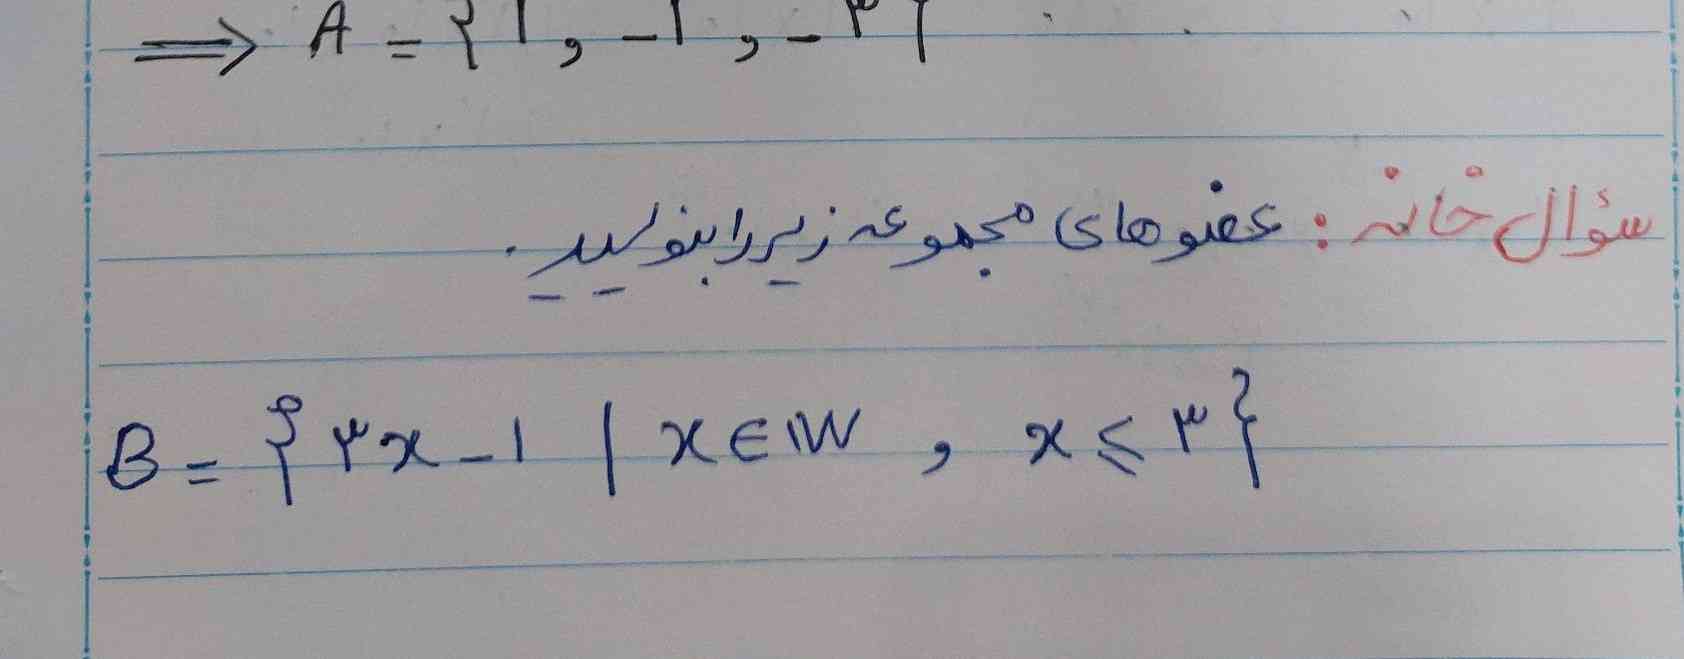 ⟹ A = {۱ , -۱ , -۳}
سؤال خانه : عضوهای مجموعه زیر را بنویسید.
B = {۳x - ۱ | x ∈ W , x ≤ ۳}